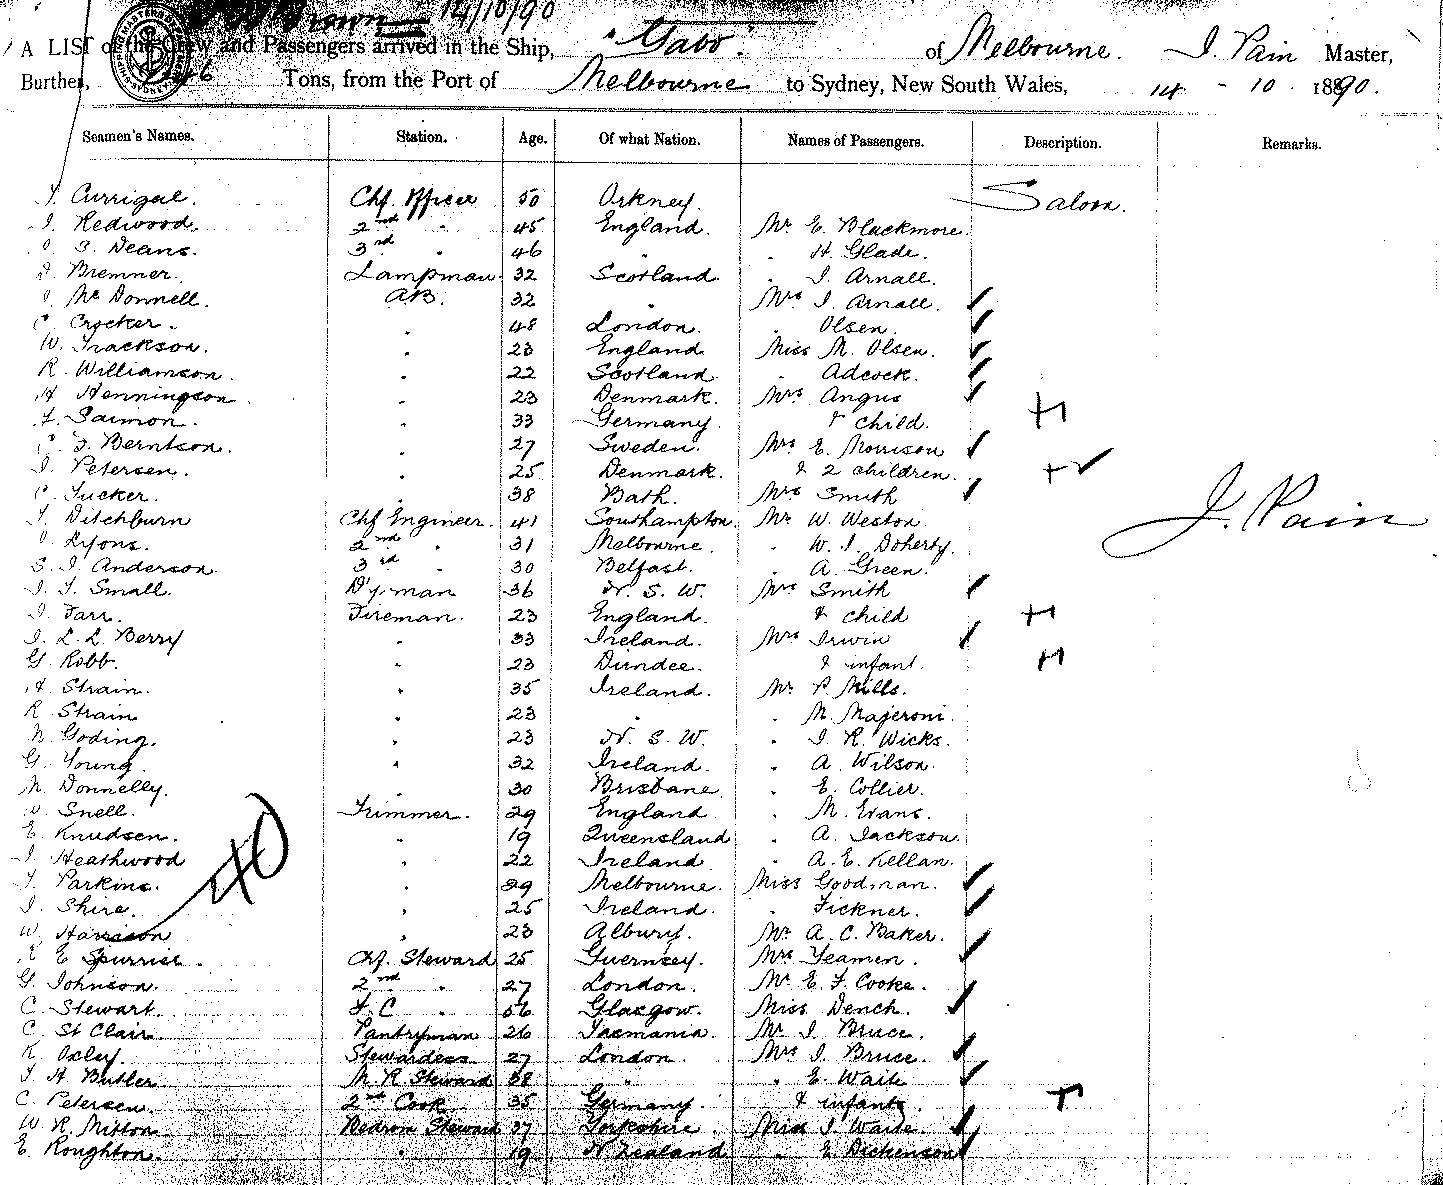 Brown 14/10/90
A LIST of the Crew and Passengers arrived in the Ship, "Gabo" of Melbourne. J. Pain Master,
Burthen, Tons, from the Port of Melbourne to Sydney, New South Wales, 14 - 10 1890.
Seamen's Names. Station. Age. Of what Nation. Names of Passengers. Description. Remarks.
Currigal. Chf Officer 50 Orkney. Saloon.
J. Redwood. 2nd " 45 England. Mr E. Blackmore.
S. Deans. 3rd " 46 " " H. Glade.
J. Bremner. Lampman 32 Scotland " J. Arnall.
Mc Donnell. AB. 32 " Mrs J. Arnall.
C. Crocker. " 48 London. " Olsen.
W. Trackson. " 23 England Miss M. Olsen.
R. Williamson. " 22 Scotland " Adcock.
H Henningson. " 23 Denmark. Mrs Angus
Saimon. " 33 Germany. & child.
Berntson. " 27 Sweden. Mrs E. Morrison
J. Petersen. " 25 Denmark. & 2 children.
C. Tucker. " 38 Bath. Mrs Smith
T. Ditchburn Chf Engineer. 41 Southampton. Mr W. Weston.
Lyons. 2nd " 31 Melbourne. " W. J. Doherty. J. Pain
S. J. Anderson 3rd " 30 Belfast. " A. Green.
J. T. Small. D'y man 36 N. S. W. Mrs Smith
J. Farr. Fireman. 23 England & child
J. L. L. Berry " 33 Ireland. Mrs Irwin
G. Robb. " 23 Dundee. & infant.
H. Strain. " 35 Ireland. Mr P. Mills.
R Strain " 23 " " M. Majeroni.
M. Goding. " 23 N. S. W. " J. R. Wicks.
G. Young. " 32 Ireland. " A. Wilson.
M. Donnelly. " 30 Brisbane " E. Collier.
Snell. Trimmer. 29 England " M. Evans.
E. Knudsen. " 19 Queensland " A. Jackson.
J. Heathwood " 22 Ireland " A. E. Kellan.
T. Parkins. " 29 Melbourne. Miss Goodman.
J. Shire. " 25 Ireland. " Fickner.
W. Harrison " 23 Albury. Mr A. C. Baker.
R E Spurrier. Chf. Steward 25 Guernsey. Mrs Yeamen.
G. Johnson. 2nd " 27 London. Mr E. F. Cooke.
C. Stewart. F. C " 56 Glasgow. Miss Dench.
C. St Clair. Pantryman 26 Tasmania. Mr J. Bruce.
K. Oxley. Stewardess 27 London. Mrs J. Bruce.
T. H Butler. M R Steward 38 " " E. Waite
C. Petersen. 2nd Cook 35 Germany. & infant.
W R. Mitton Bedroom Steward 37 Yorkshire. Miss J. Waite
E. Roughton. " 19 N Zealand " E. Dickenson
40